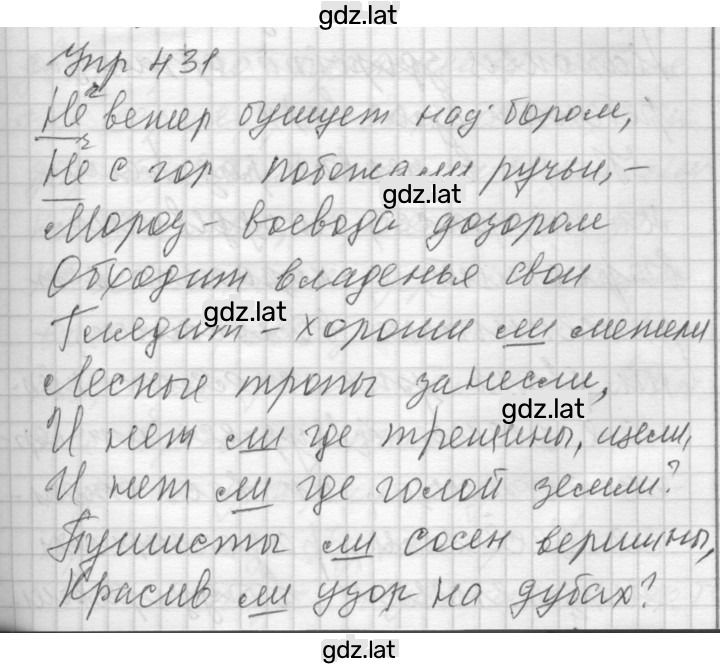 gdz.lat
Упр 431
Не ветер бушует над бором,
Не с гор побежали ручьи, –
gdz.lat
Мороз – воевода дозором
Обходит владенья свои
gdz.lat
Глядит – хороши ли метели
Лесные тропы занесли,
gdz.lat
И нет ли где трещины, щели,
И нет ли где голой земли?
Пушисты ли сосен вершины,
Красив ли узор на дубах?
gdz.lat